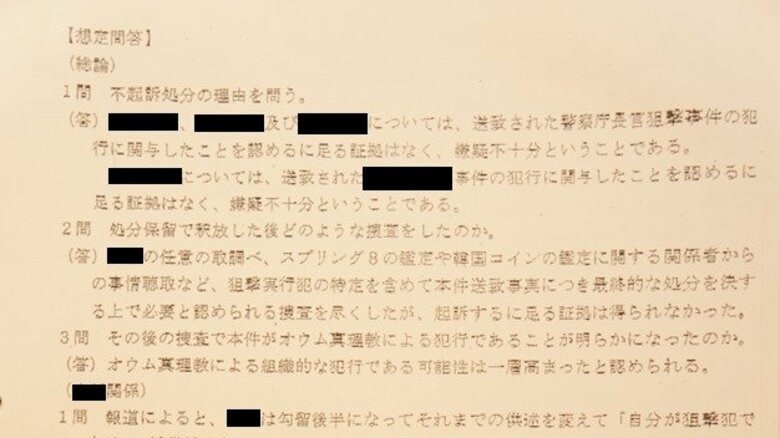 【想定問答】
(総論)
1問 不起訴処分の理由を問う。
(答) 、 及び については、送致された警察庁長官狙撃事件の犯
行に関与したことを認めるに足る証拠はなく、嫌疑不十分ということである。
については、送致された 事件の犯行に関与したことを認めるに
足る証拠はなく、嫌疑不十分ということである。
2問 処分保留で釈放した後どのような捜査をしたのか。
(答) の任意の取調べ、スプリング8の鑑定や韓国コインの鑑定に関する関係者から
の事情聴取など、狙撃実行犯の特定を含めて本件送致事実につき最終的な処分を決す
る上で必要と認められる捜査を尽くしたが、起訴するに足る証拠は得られなかった。
3問 その後の捜査で本件がオウム真理教による犯行であることが明らかになったのか。
(答) オウム真理教による組織的な犯行である可能性は一層高まったと認められる。
( 関係)
1問 報道によると、 は勾留後半になってそれまでの供述を変えて「自分が狙撃犯で